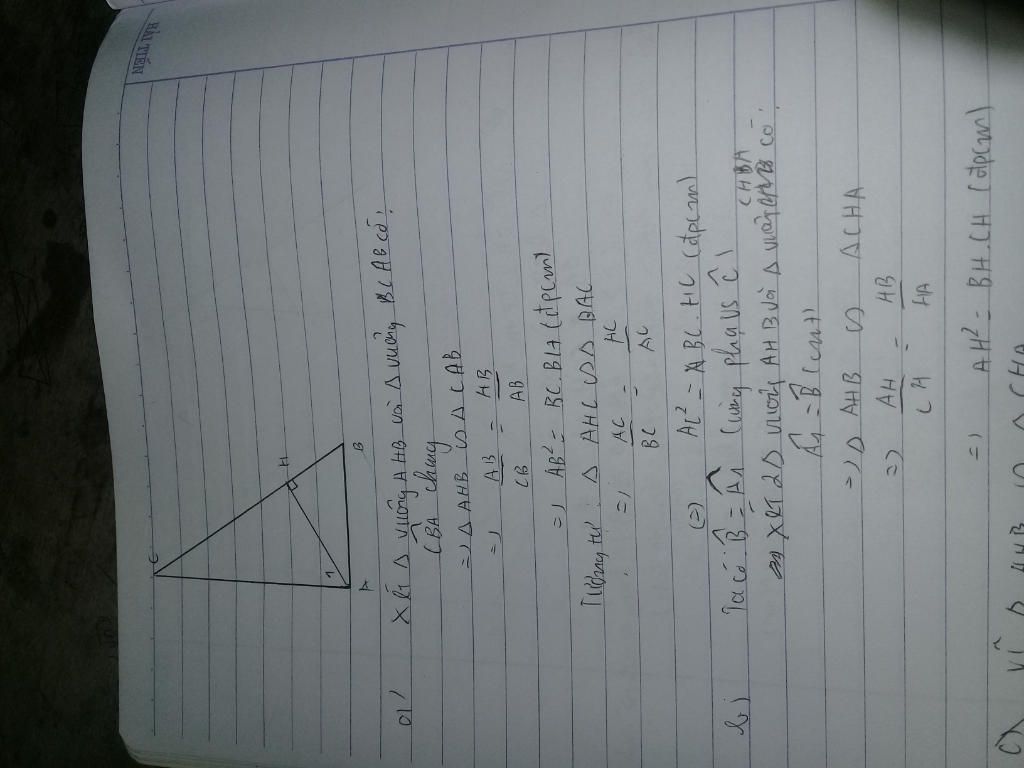 HẢI TIẾN
C
H
1
A
B
a) Xét Δ vuông AHB và Δ vuông CAB có:
CBA chung
=) Δ AHB ∽ Δ CAB
=) AB/CB = HB/AB
=) AB² = BC.BH (đpcm)
Tương tự: Δ AHC ∽ Δ BAC
=) AC/BC = HC/AC
(=) AC² = BC.HC (đpcm)
b) Ta có: B̂ = Â1 (cùng phụ vs Ĉ)
Xét 2Δ vuông AHB và Δ vuông CHA có:
Â1 = B̂ (cmt)
=) Δ AHB ∽ Δ CHA
=) AH/CH = HB/HA
=) AH² = BH.CH (đpcm)
c) Vì Δ AHB ∽ Δ CHA